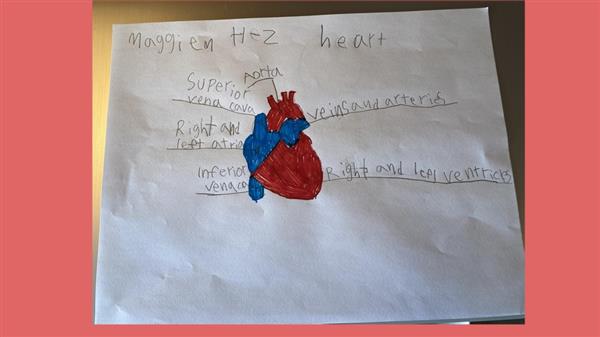 Maggie n H-Z heart
Aorta
Superior
vena cava
veins and arteries
Right and
left atria
Inferior
vena ca
Right and left ventricls